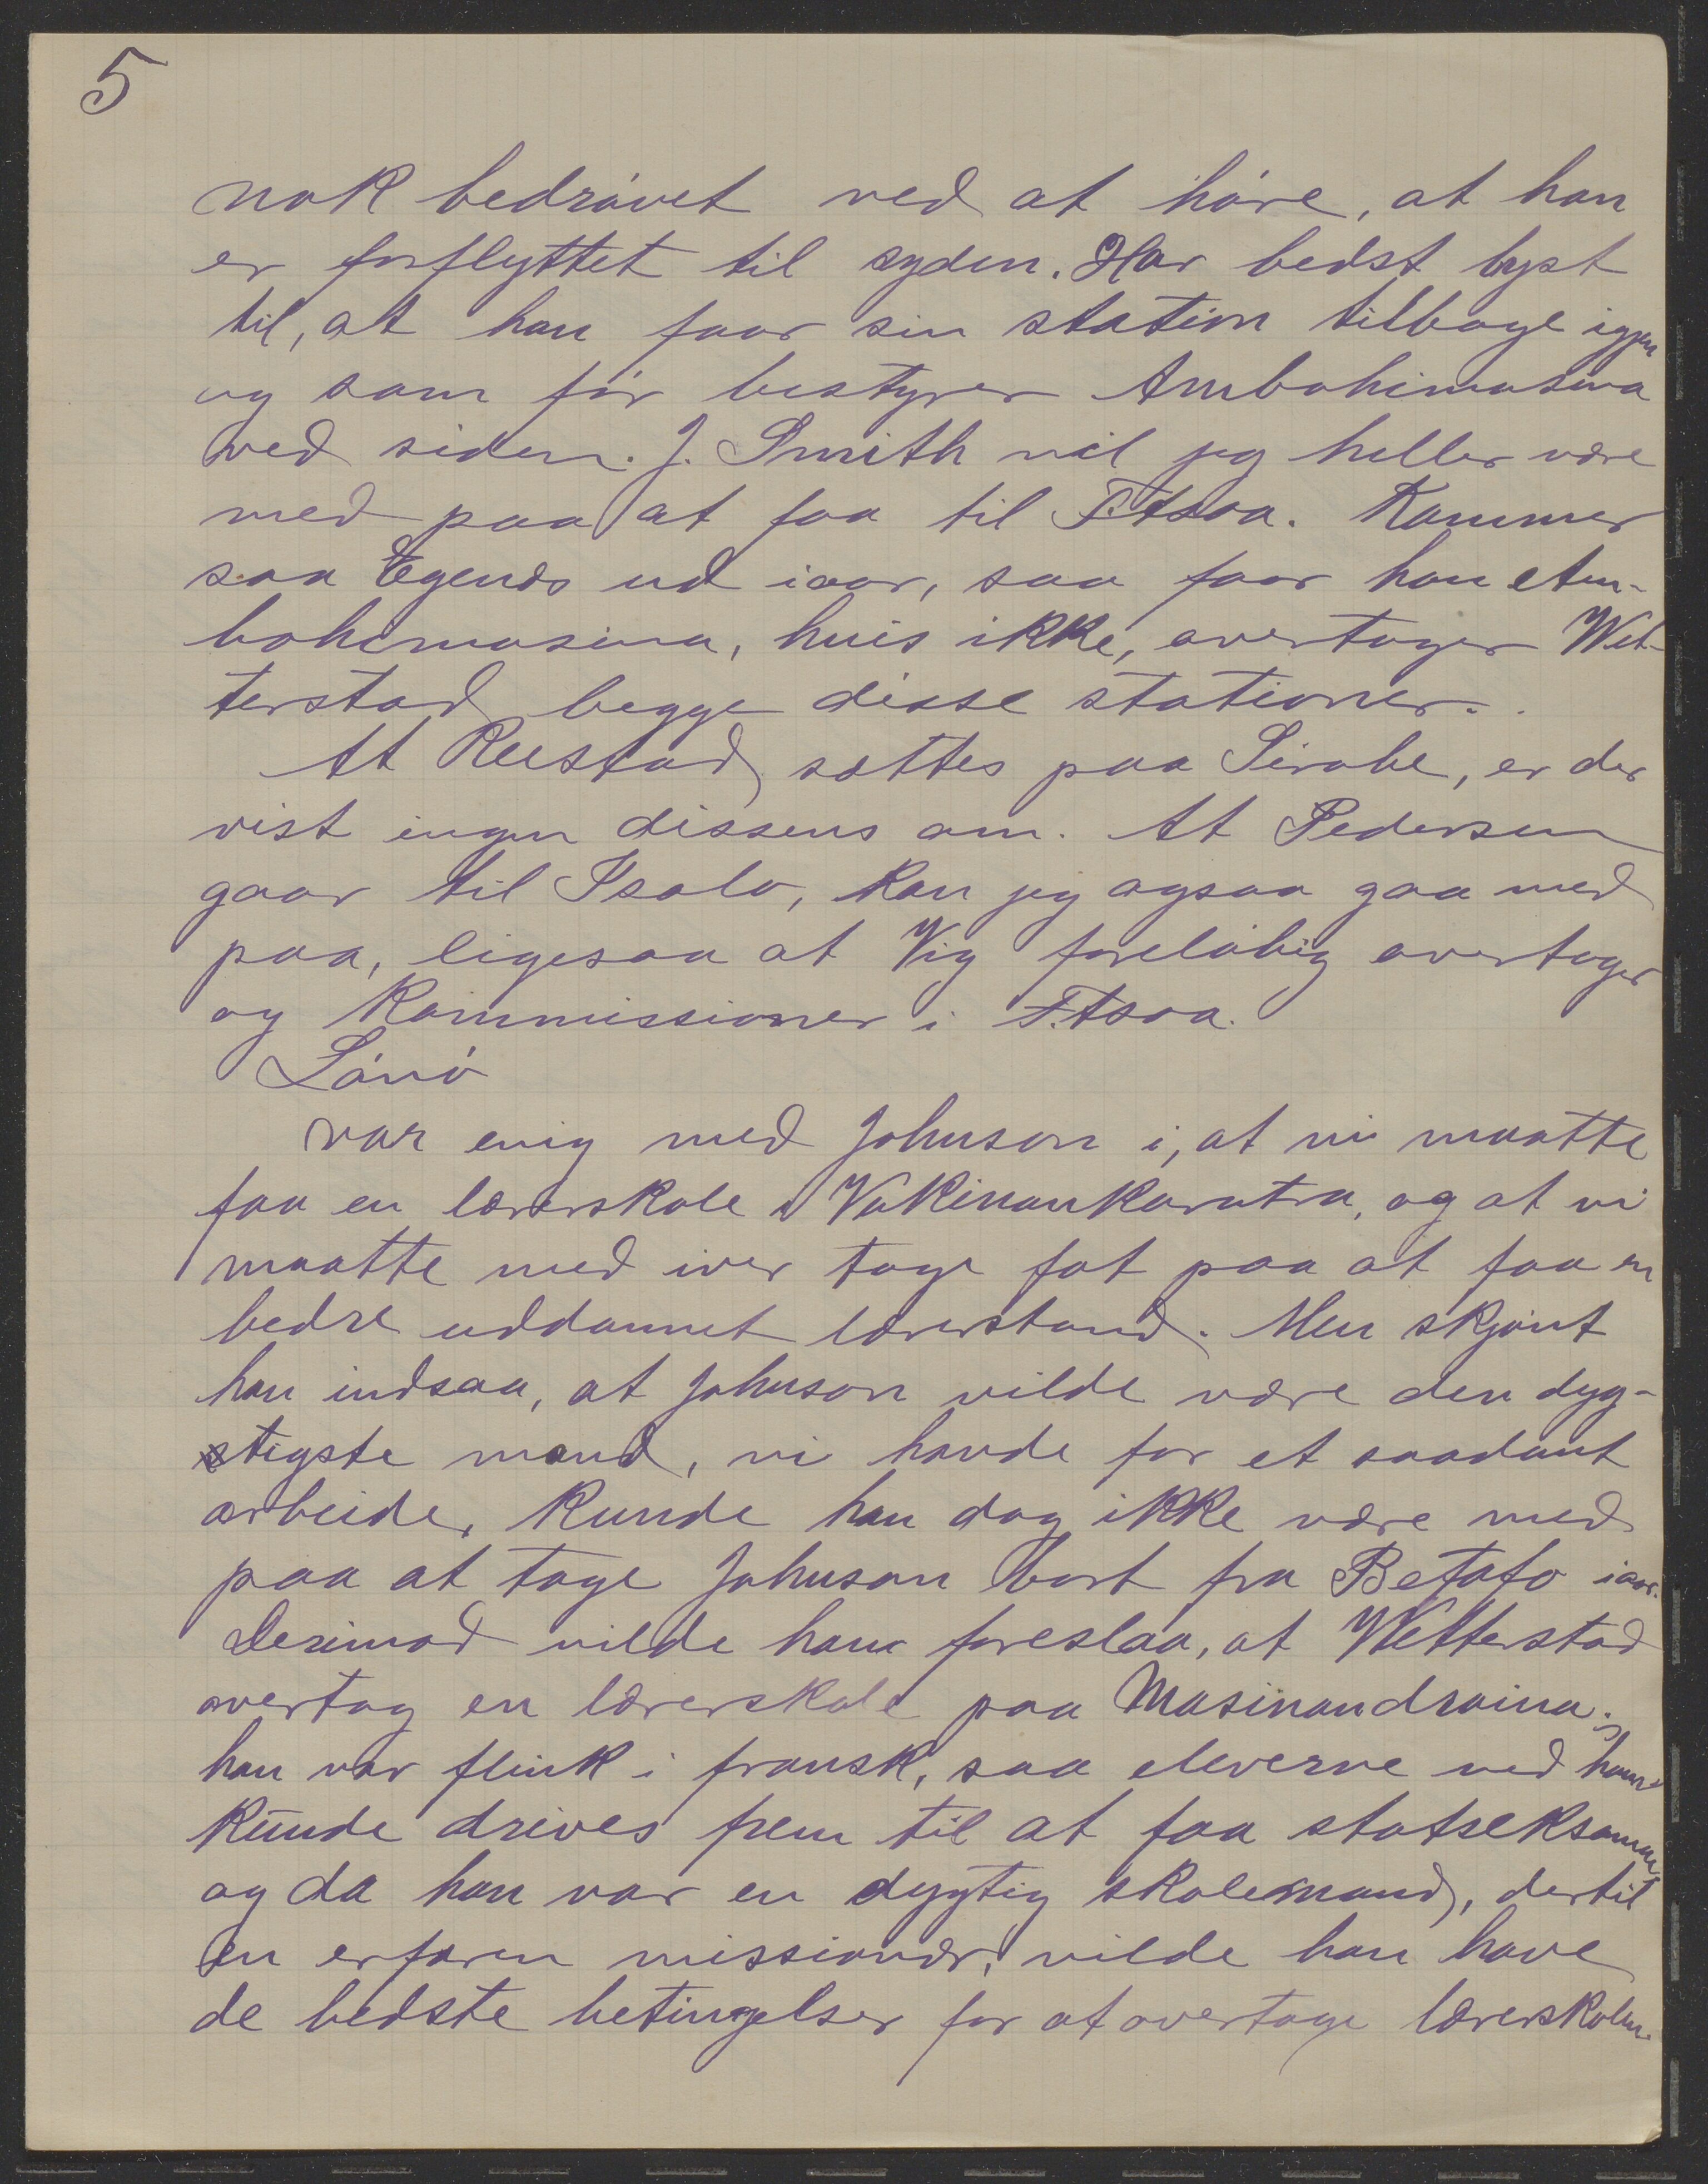 5
nok bedrøvet ved at høre, at han
er forflyttet til syden. Har bedst lyst
til, at han faar sin station tilbage igjen
og som før bestyrer Ambohimasina
ved siden. J. Smith vil jeg heller være
med paa at faa til F.tsoa. Kommer
saa Egenæs ud iaar, saa faar han Am-
bohimasina, hvis ikke, overtager Wet-
terstad begge disse stationer.
At Reestad sættes paa Sirabe, er der
vist ingen dissens om. At Pedersen
gaar til Isalo, kan jeg ogsaa gaa med
paa, ligesaa at Vig foreløbig overtager
og kommissioner i F.tsoa.
Lønø
var enig med Johnson i, at vi maatte
faa en lærerskole i Vakinankaratra, og at vi
maatte med iver tage fat paa at faa en
bedre uddannet lærerstand. Men skjønt
han indsaa, at Johnson vilde være den dyg-
tigste mand, vi havde for et saadant
arbeide, kunde han dog ikke være med
paa at tage Johnson bort fra Betafo iaar.
Derimod vilde han foreslaa, at Wetterstad
overtog en lærerskole paa Masinandraina;
han var flink i fransk, saa eleverne ved ham
kunde drives frem til at faa statseksamen,
og da han var en dygtig skolemand, dertil
en erfaren missionær, vilde han have
de bedste betingelser for at overtage lærerskolen.